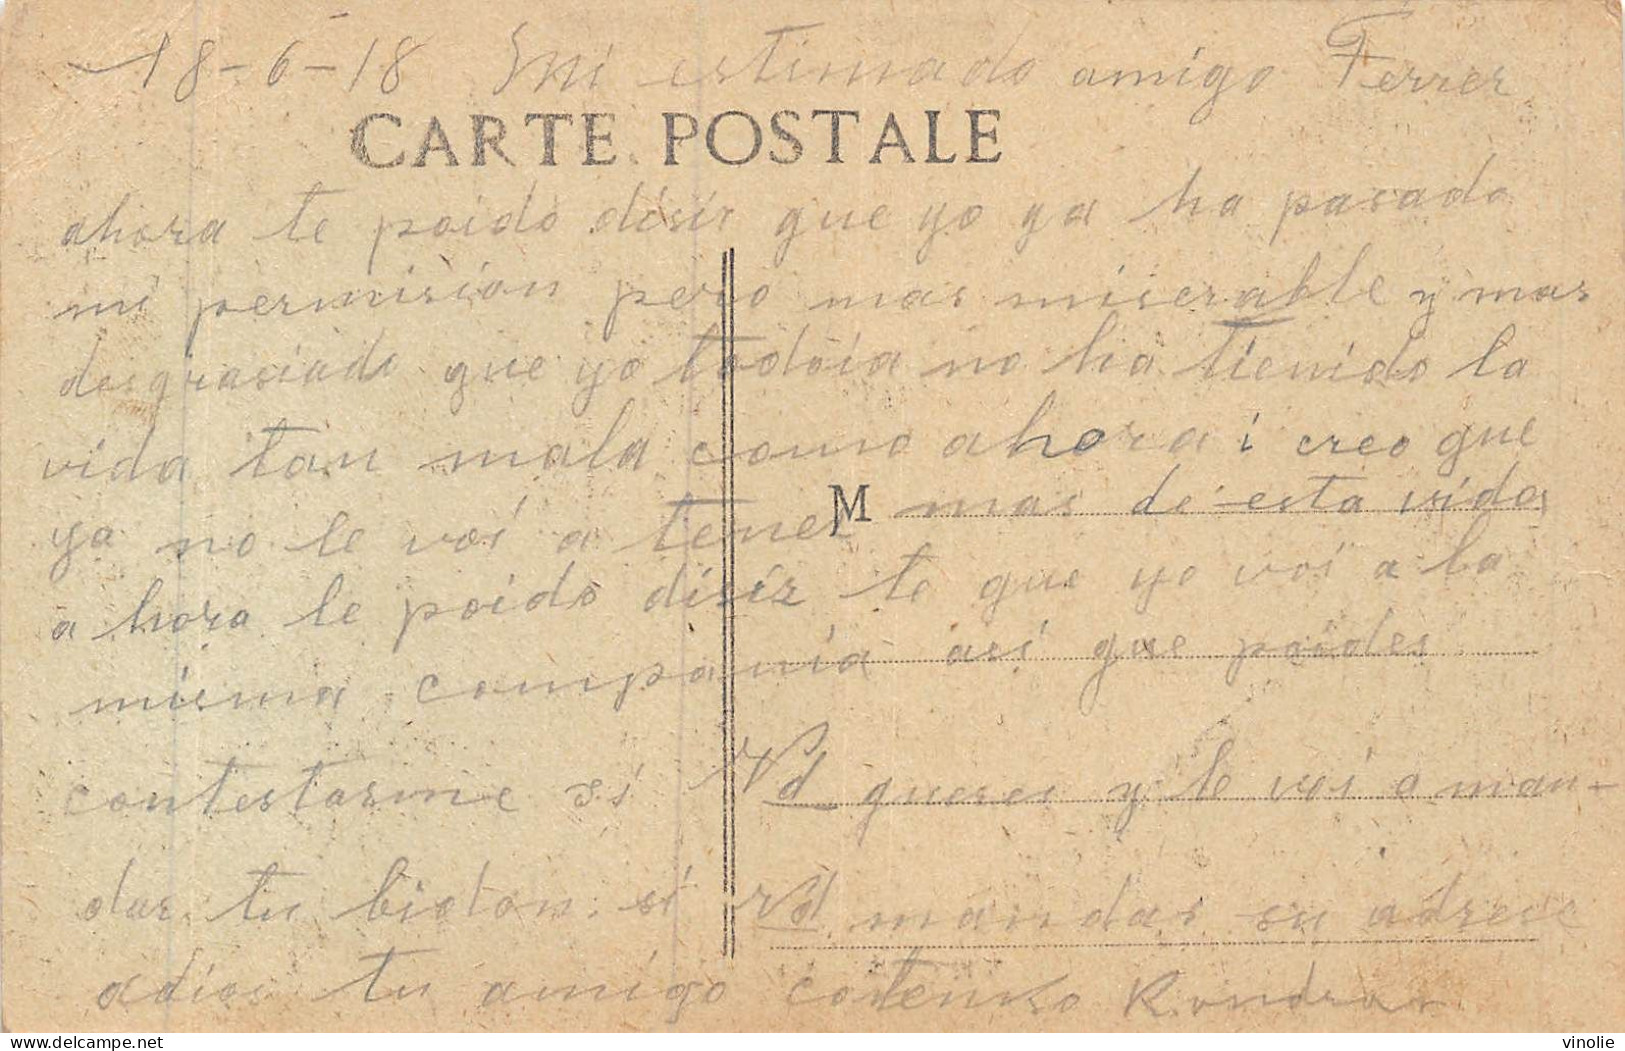 18-6-18 Mi estimado amigo Ferrer
CARTE POSTALE
ahora te poido disir que yo ya ha pasado
mi permision pero mas miserable y mas
desgrasiado que yo todoia no ha tienido la
vida tan mala como ahora i creo que
ya no le voi a tener M mas de esta vida
a hora le poido disir te que yo voi a la
misma compania asi que poides
contestarme si Vd queres y le voi a man-
dar tu bioton si Vd mandas su adrece
adios tu amigo
delcampe.net
vinolie